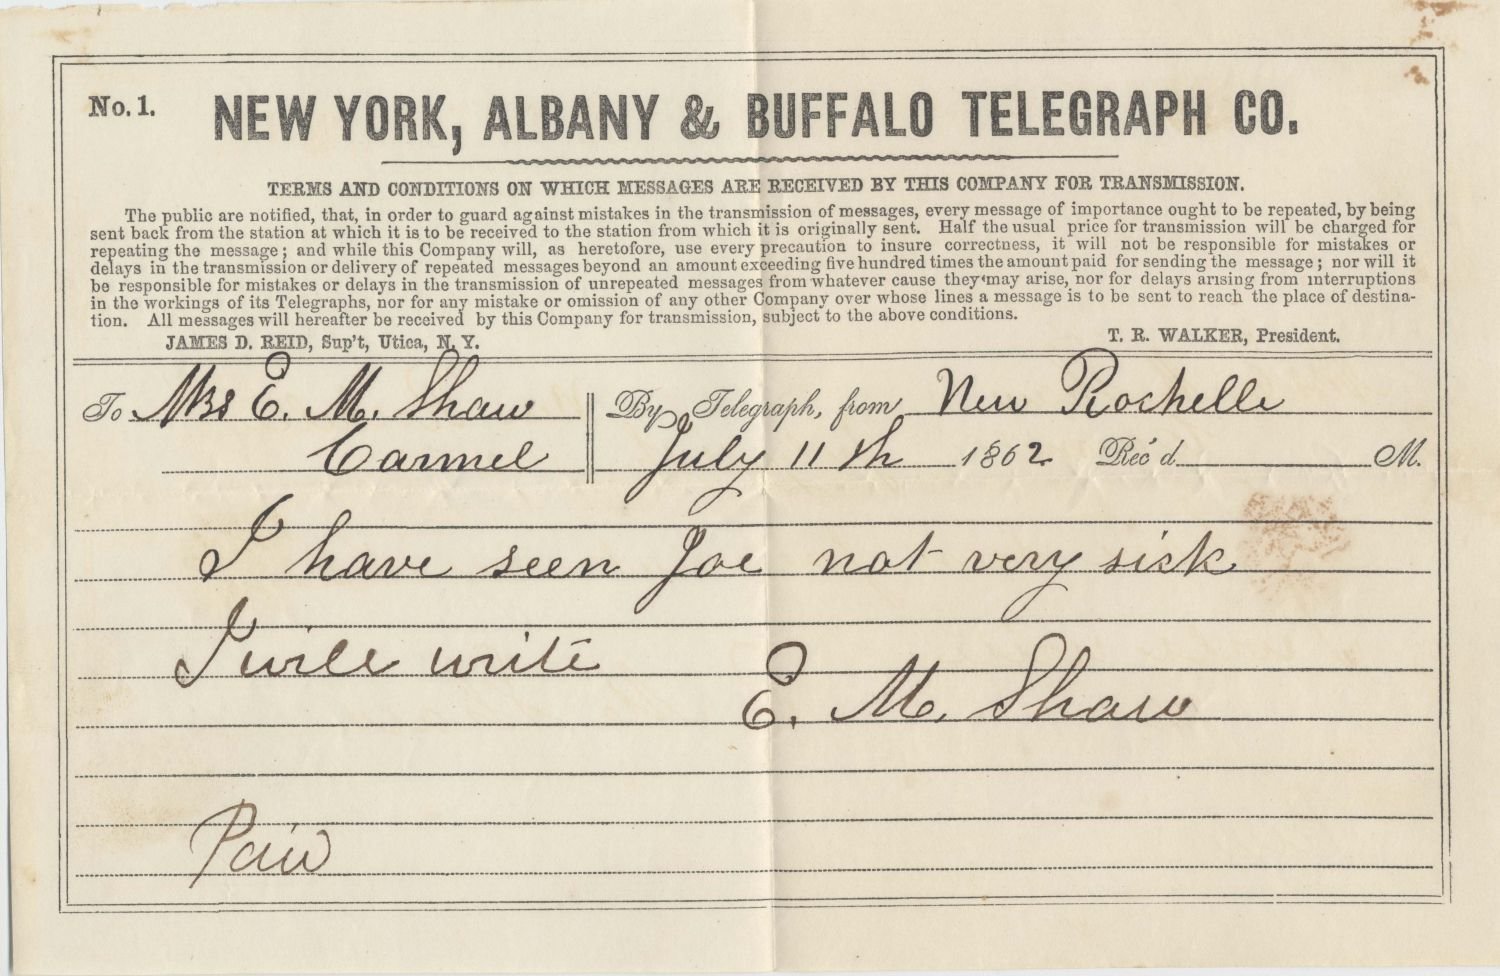 No. 1. NEW YORK, ALBANY & BUFFALO TELEGRAPH CO.
TERMS AND CONDITIONS ON WHICH MESSAGES ARE RECEIVED BY THIS COMPANY FOR TRANSMISSION.
The public are notified, that, in order to guard against mistakes in the transmission of messages, every message of importance ought to be repeated, by being
sent back from the station at which it is to be received to the station from which it is originally sent. Half the usual price for transmission will be charged for
repeating the message; and while this Company will, as heretofore, use every precaution to insure correctness, it will not be responsible for mistakes or
delays in the transmission or delivery of repeated messages beyond an amount exceeding five hundred times the amount paid for sending the message; nor will it
be responsible for mistakes or delays in the transmission of unrepeated messages from whatever cause they may arise, nor for delays arising from interruptions
in the workings of its Telegraphs, nor for any mistake or omission of any other Company over whose lines a message is to be sent to reach the place of destina-
tion. All messages will hereafter be received by this Company for transmission, subject to the above conditions.
JAMES D. REID, Sup't, Utica, N. Y. T. R. WALKER, President.
To Mrs E. M. Shaw By Telegraph, from New Rochelle
Carmel July 11th 1862 Rec'd M.
I have seen Joe not very sick
I will write
E. M. Shaw
Paid